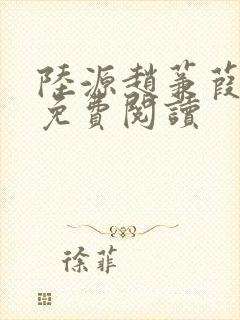 陸源趙蒹葭
免費閱讀
徐菲